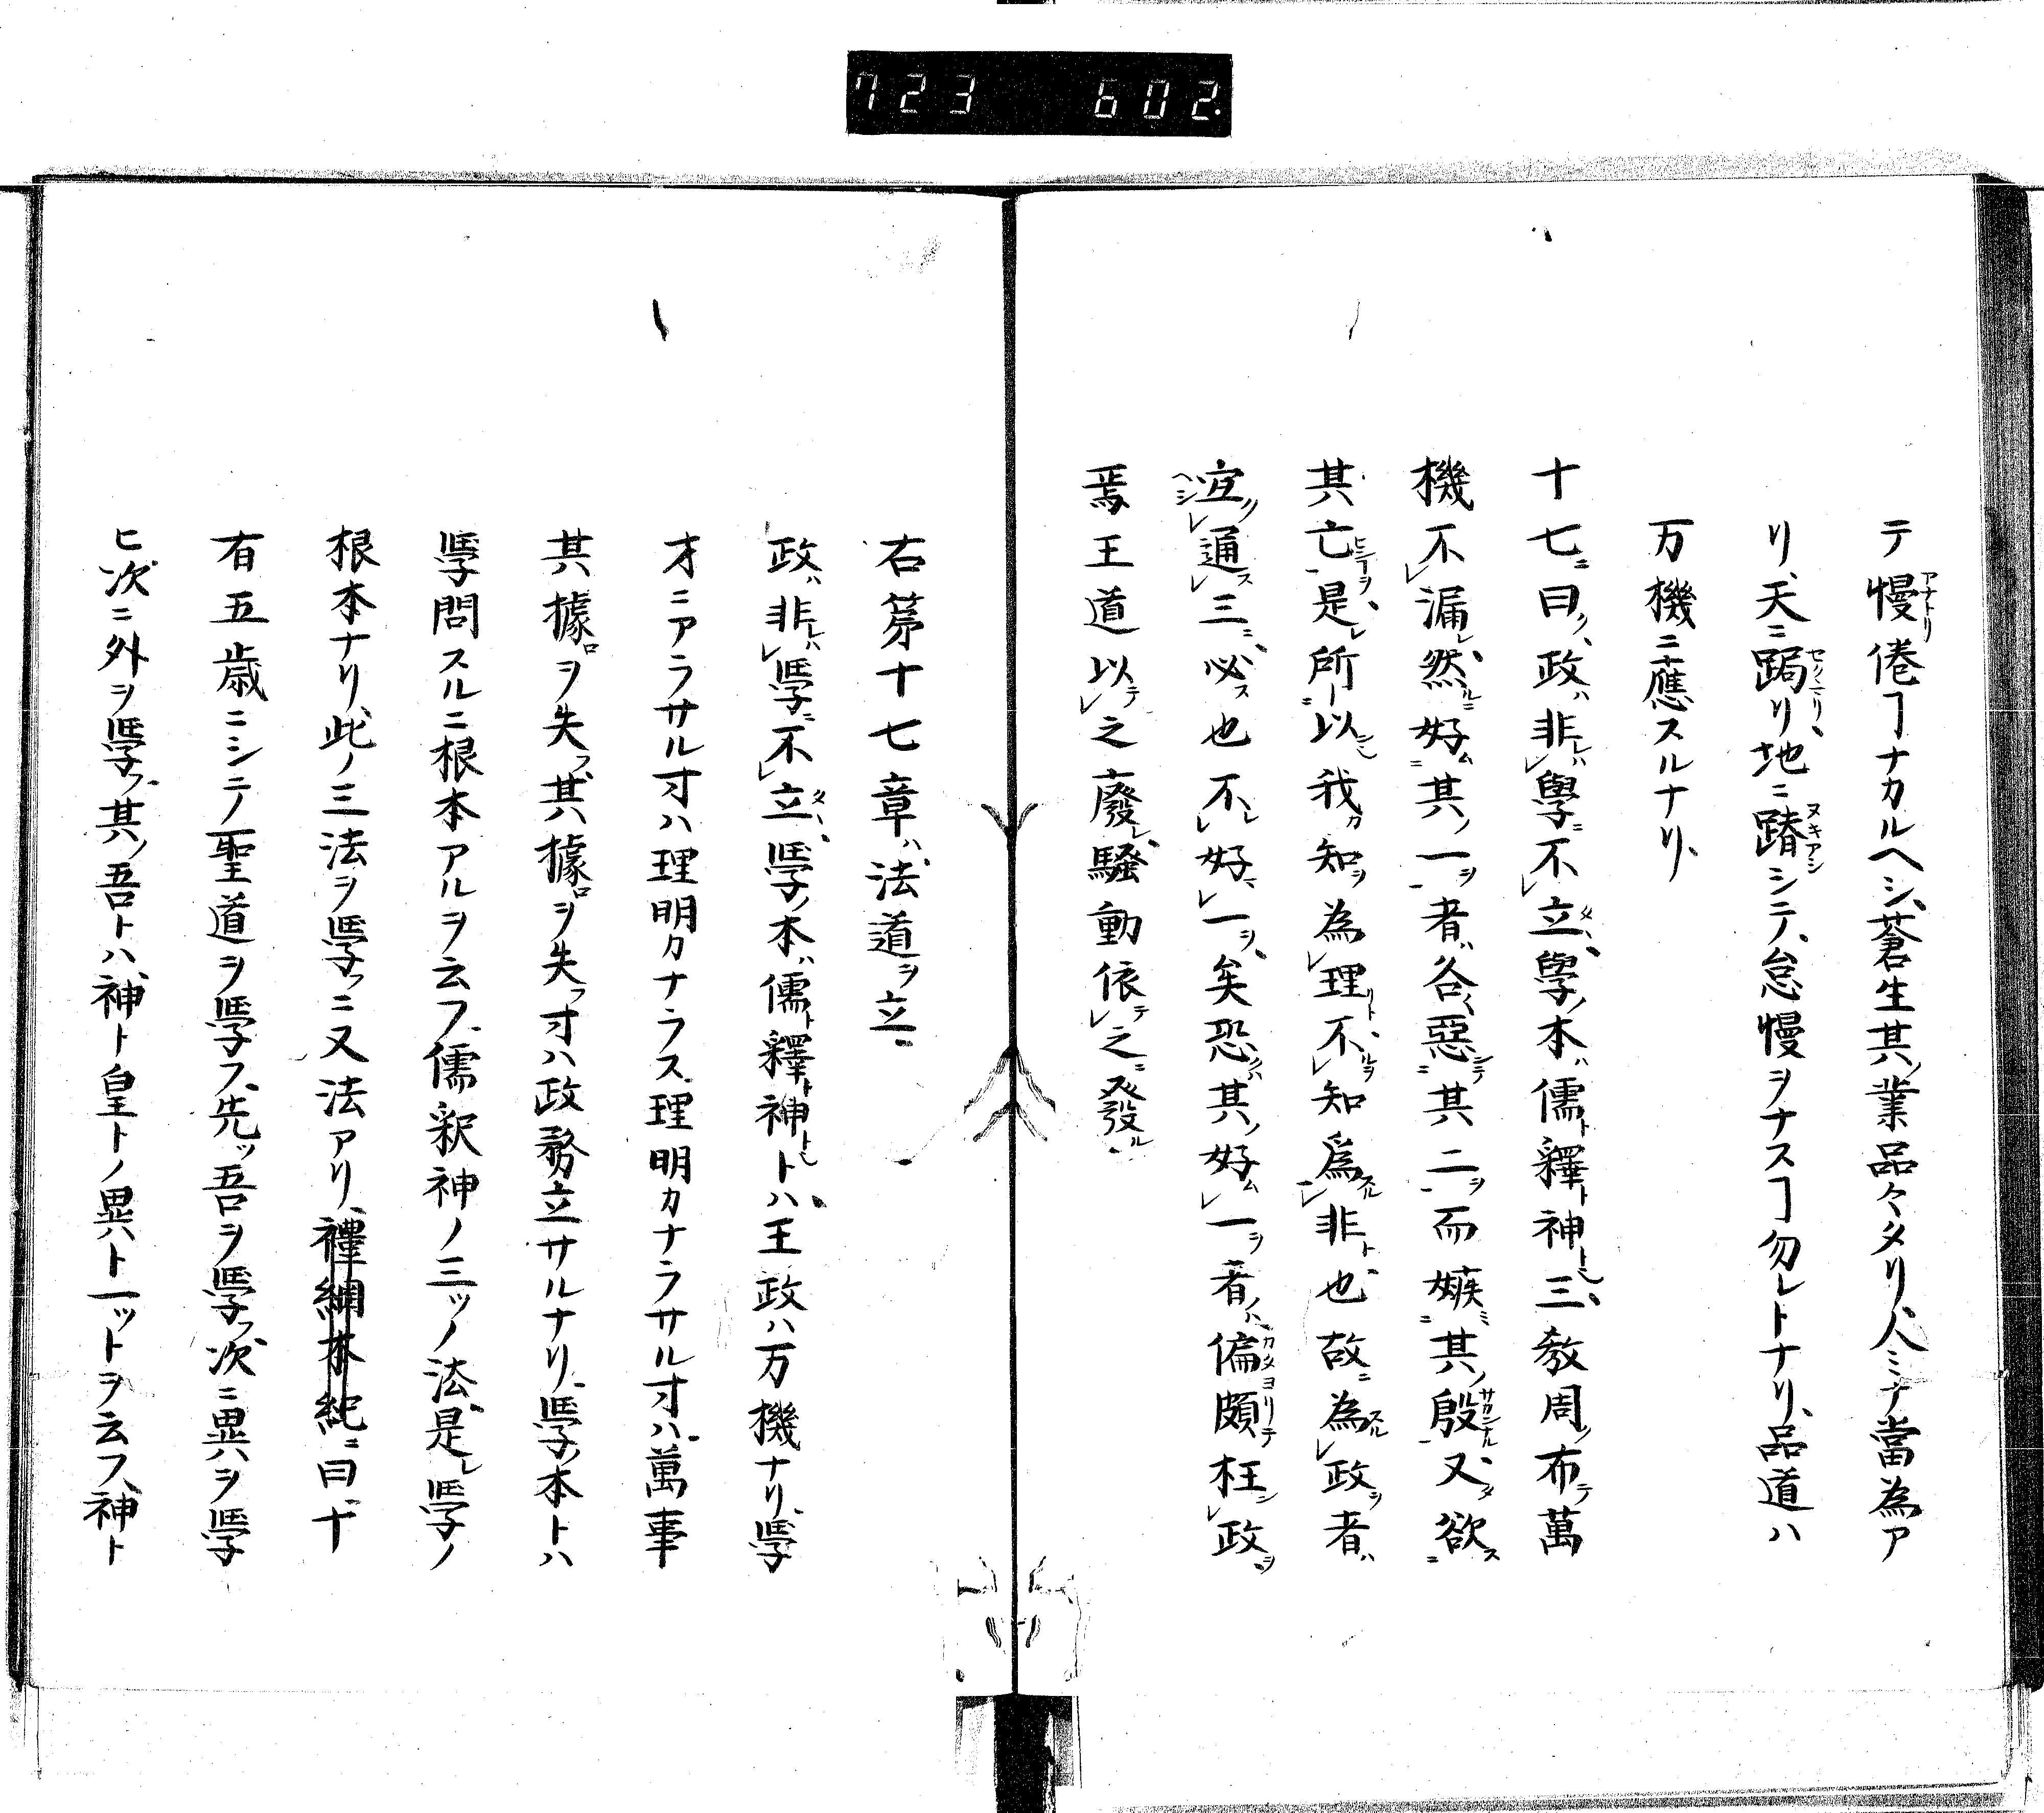 723 602
テ慢倦ヿナカルヘシ、蒼生其ノ業品々タリ、人ミナ當為ア
リ、天ニ跼リ地ニ蹐シテ、怠慢ヲナスヿ勿レトナリ、品道ハ
万機ニ應スルナリ、
十七ニ曰ク、政ハ非レハ學ニ不立タ、學ノ本ハ儒ト釋ト神トモ、三教周ノ布テ萬
機不漏レ、然ルニ好ム其ノ一ヲ者ハ各〱惡シテ其二ヲ而嫉ミ其ノ殷又タ欲ス
其亡ヒ一ヲ、是レ所以ニモ我カ知ヲ為理リト、不ルヲ知為スル非ト也、故ニ為スル政ヲ者ハ
宜ク通ス三ニ、必ス也不レ好マ一ヲ、矣恐クハ其ノ好ム一ヲ者ノハ、偏頗テ枉シ政ヲ
焉王道以テ之廢レ、騒動依テ之ニ發ル
右第十七章ハ、法道ヲ立、
政ハ非レハ斈ニ不立タ、斈ノ本ハ儒ト釋ト神トモトハ、王政ハ万機ナリ、斈
才ニアラサル寸ハ理明カナラス、理明カナラサル寸ハ、萬事
其據ロヲ失フ、其據ロヲ失フ寸ハ政務立サルナリ、斈ノ本トハ
斈問スルニ根本アルヲ云フ、儒釈神ノ三ツノ法、是レ斈ノ
根本ナリ、此ノ三法ヲ斈フニ又法アリ、禮綱本紀ニ曰、十
有五歳ニシテノ聖道ヲ斈フ、先ツ吾ヲ斈フ、次ニ異ハヲ斈
ヒ、次ニ外ヲ斈フ、其ノ吾トハ、神ト皇トノ異ト一ットヲ云フ、神ト